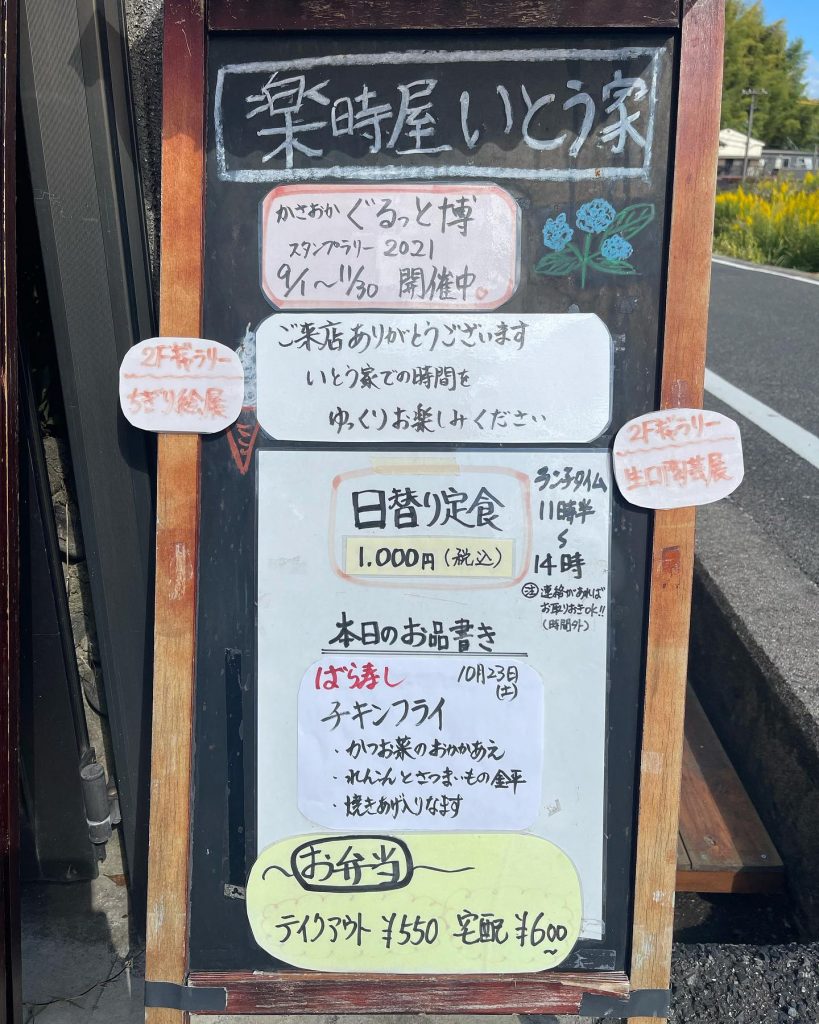 楽時屋 いとう家
かさおか ぐるっと博
スタンプラリー 2021
9/1〜11/30 開催中。
ご来店ありがとうございます
いとう家での時間を
ゆっくりお楽しみください
2Fギャラリー
ちぎり絵展
2Fギャラリー
生口陶芸展
日替り定食
1.000円(税込)
ランチタイム
11時半
〜
14時
注 連絡があれば
お取りおきOK!!
(時間外)
本日のお品書き
ばら寿し 10月23日
(土)
チキンフライ
・かつお菜のおかかあえ
・れんこんとさつまいもの金平
・焼きあげ入りなます
〜お弁当〜
テイクアウト ¥550 宅配 ¥600〜